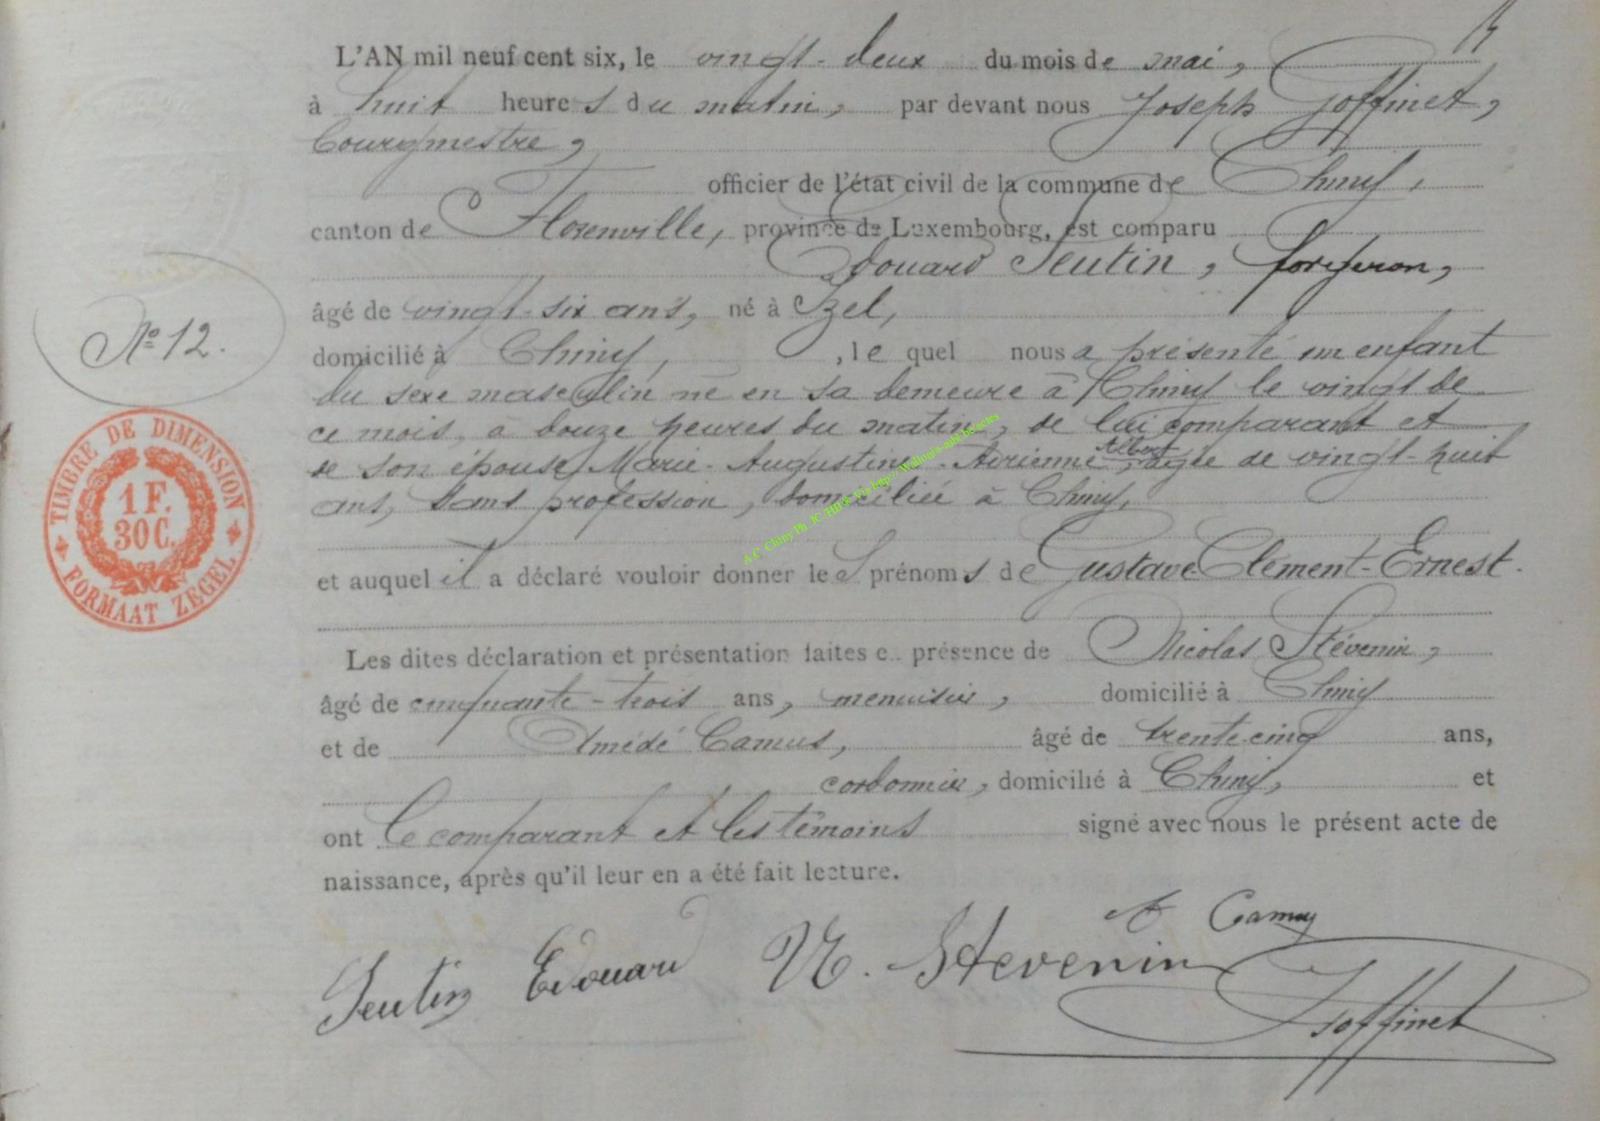 L'AN mil neuf cent six, le vingt-deux du mois de mai,
à huit heures du matin, par devant nous Joseph Goffinet,
bourgmestre,
officier de l'état civil de la commune de Chiny,
canton de Florenville, province de Luxembourg, est comparu
Edouard Feutin, forgeron,
âgé de vingt-six ans, né à Izel,
domicilié à Chiny, , le quel nous a présenté un enfant
du sexe masculin né en sa demeure à Chiny le vingt de
ce mois, à douze heures du matin, de lui comparant et
de son épouse Marie-Augustine-Adrienne Albert, âgée de vingt-huit
ans, sans profession, domiciliée à Chiny,
et auquel il a déclaré vouloir donner les prénoms de Gustave-Clément-Ernest.
Les dites déclaration et présentation faites en présence de Nicolas Stévenin,
âgé de cinquante-trois ans, menuisier, domicilié à Chiny
et de Amédé Camus, âgé de trente-cinq ans,
cordonnier, domicilié à Chiny, et
ont le comparant et les témoins signé avec nous le présent acte de
naissance, après qu'il leur en a été fait lecture.
A Camus
Feutin Edouard N. Stevenin
JGoffinet
N° 12.
TIMBRE DE DIMENSION
1 F.
30 C.
FORMAAT ZEGEL